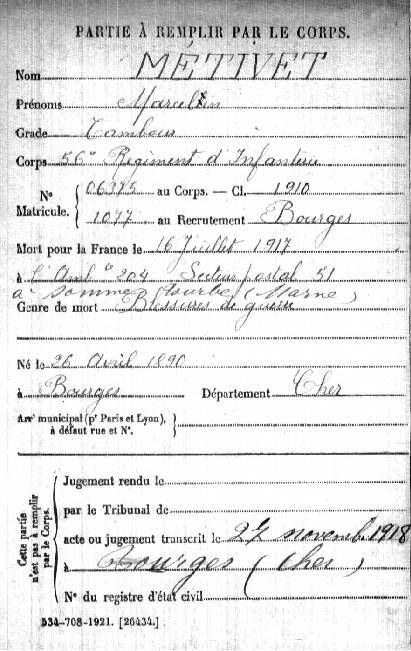 PARTIE À REMPLIR PAR LE CORPS.
Nom MÉTIVET
Prénoms Marcellin
Grade Tambour
Corps 56e Régiment d'Infanterie
N° Matricule. { 06375 au Corps. — Cl. 1910
1077 au Recrutement Bourges
Mort pour la France le 16 Juillet 1917
à l'Amb ce 204 Secteur postal 51
à Somme Tourbe (Marne)
Genre de mort Blessures de guerre
Né le 26 Avril 1890
à Bourges Département Cher
Arrt municipal (pr Paris et Lyon), à défaut rue et N°.
Cette partie n'est pas à remplir par le Corps.
Jugement rendu le
par le Tribunal de
acte ou jugement transcrit le 27 novemb. 1918
à Bourges (Cher)
N° du registre d'état civil
534-708-1921. [26434.]